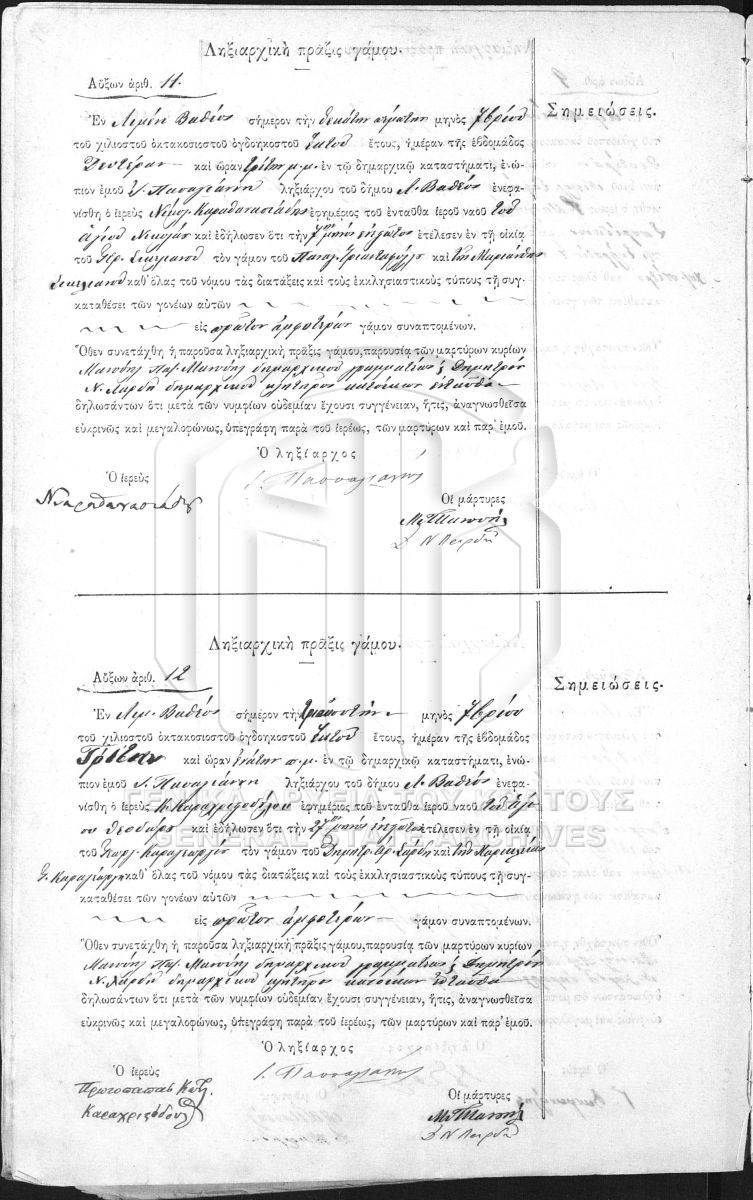 Ληξιαρχικὴ πρᾶξις γάμου.
Αὔξων ἀριθ. 11.
Σημειώσεις.
Ἐν Λιμένι Βαθέος σήμερον τὴν δεκάτην πέμπτην μηνὸς 7βρίου
τοῦ χιλιοστοῦ ὀκτακοσιοστοῦ ὀγδοηκοστοῦ ἕκτου ἔτους, ἡμέραν τῆς ἑβδομάδος
Δευτέραν καὶ ὥραν τρίτην μ.μ. ἐν τῷ δημαρχικῷ καταστήματι, ἐνώ-
πιον ἐμοῦ Ι. Παπαγιάννη ληξιάρχου τοῦ δήμου Λ. Βαθέος ἐνεφα-
νίσθη ὁ ἱερεὺς Νικόλ. Καραθανασιάδης ἐφημέριος τοῦ ἐνταῦθα ἱεροῦ ναοῦ τοῦ
ἁγίου Νικολάου καὶ ἐδήλωσεν ὅτι τὴν 7ην μηνὸς ἐτέλεσεν ἐν τῇ οἰκίᾳ
τοῦ τὸν γάμον τοῦ Παναγ. Τριανταφύλλου καὶ τῆς
καθ᾽ ὅλας τοῦ νόμου τὰς διατάξεις καὶ τοὺς ἐκκλησιαστικοὺς τύπους τῇ συγ-
καταθέσει τῶν γονέων αὐτῶν
εἰς πρῶτον ἀμφοτέρων γάμον συναπτομένων.
Ὅθεν συνετάχθη ἡ παροῦσα ληξιαρχικὴ πρᾶξις γάμου, παρουσίᾳ τῶν μαρτύρων κυρίων
Μανώλη Παπ. Μανώλη δημαρχικοῦ γραμματέως & Δημητρίου
Ν. δημαρχικοῦ κλητῆρος κατοίκων ἐνταῦθα
δηλωσάντων ὅτι μετὰ τῶν νυμφίων οὐδεμίαν ἔχουσι συγγένειαν, ἥτις, ἀναγνωσθεῖσα
εὐκρινῶς καὶ μεγαλοφώνως, ὑπεγράφη παρὰ τοῦ ἱερέως, τῶν μαρτύρων καὶ παρ᾽ ἐμοῦ.
Ὁ ληξίαρχος
Ι. Παπαγιάννης
Ὁ ἱερεὺς
Ν. Καραθανασιάδης
Οἱ μάρτυρες
Ληξιαρχικὴ πρᾶξις γάμου.
Αὔξων ἀριθ. 12
Σημειώσεις.
Ἐν Λιμ. Βαθέος σήμερον τὴν τριακοστὴν μηνὸς 7βρίου
τοῦ χιλιοστοῦ ὀκτακοσιοστοῦ ὀγδοηκοστοῦ ἕκτου ἔτους, ἡμέραν τῆς ἑβδομάδος
Τρίτην καὶ ὥραν ἐνάτην π.μ. ἐν τῷ δημαρχικῷ καταστήματι, ἐνώ-
πιον ἐμοῦ Ι. Παπαγιάννη ληξιάρχου τοῦ δήμου Λ. Βαθέος ἐνεφα-
νίσθη ὁ ἱερεὺς Κ. Καραχριζοδούλου ἐφημέριος τοῦ ἐνταῦθα ἱεροῦ ναοῦ τοῦ ἁγί-
ου Θεοδώρου καὶ ἐδήλωσεν ὅτι τὴν 27ην μηνὸς ἐτέλεσεν ἐν τῇ οἰκίᾳ
τοῦ τὸν γάμον τοῦ Δημητρ. καὶ τῆς
καθ᾽ ὅλας τοῦ νόμου τὰς διατάξεις καὶ τοὺς ἐκκλησιαστικοὺς τύπους τῇ συγ-
καταθέσει τῶν γονέων αὐτῶν
εἰς πρῶτον ἀμφοτέρων γάμον συναπτομένων.
Ὅθεν συνετάχθη ἡ παροῦσα ληξιαρχικὴ πρᾶξις γάμου, παρουσίᾳ τῶν μαρτύρων κυρίων
Μανώλη Παπ. Μανώλη δημαρχικοῦ γραμματέως & Δημητρίου
Ν. δημαρχικοῦ κλητῆρος κατοίκων ἐνταῦθα
δηλωσάντων ὅτι μετὰ τῶν νυμφίων οὐδεμίαν ἔχουσι συγγένειαν, ἥτις, ἀναγνωσθεῖσα
εὐκρινῶς καὶ μεγαλοφώνως, ὑπεγράφη παρὰ τοῦ ἱερέως, τῶν μαρτύρων καὶ παρ᾽ ἐμοῦ.
Ὁ ληξίαρχος
Ι. Παπαγιάννης
Ὁ ἱερεὺς
Πρωτοπαπας Κωτ.
Καραχριζοδούλου
Οἱ μάρτυρες
ΓΕΝΙΚΑ ΑΡΧΕΙΑ ΤΟΥ ΚΡΑΤΟΥΣ
GENERAL STATE ARCHIVES